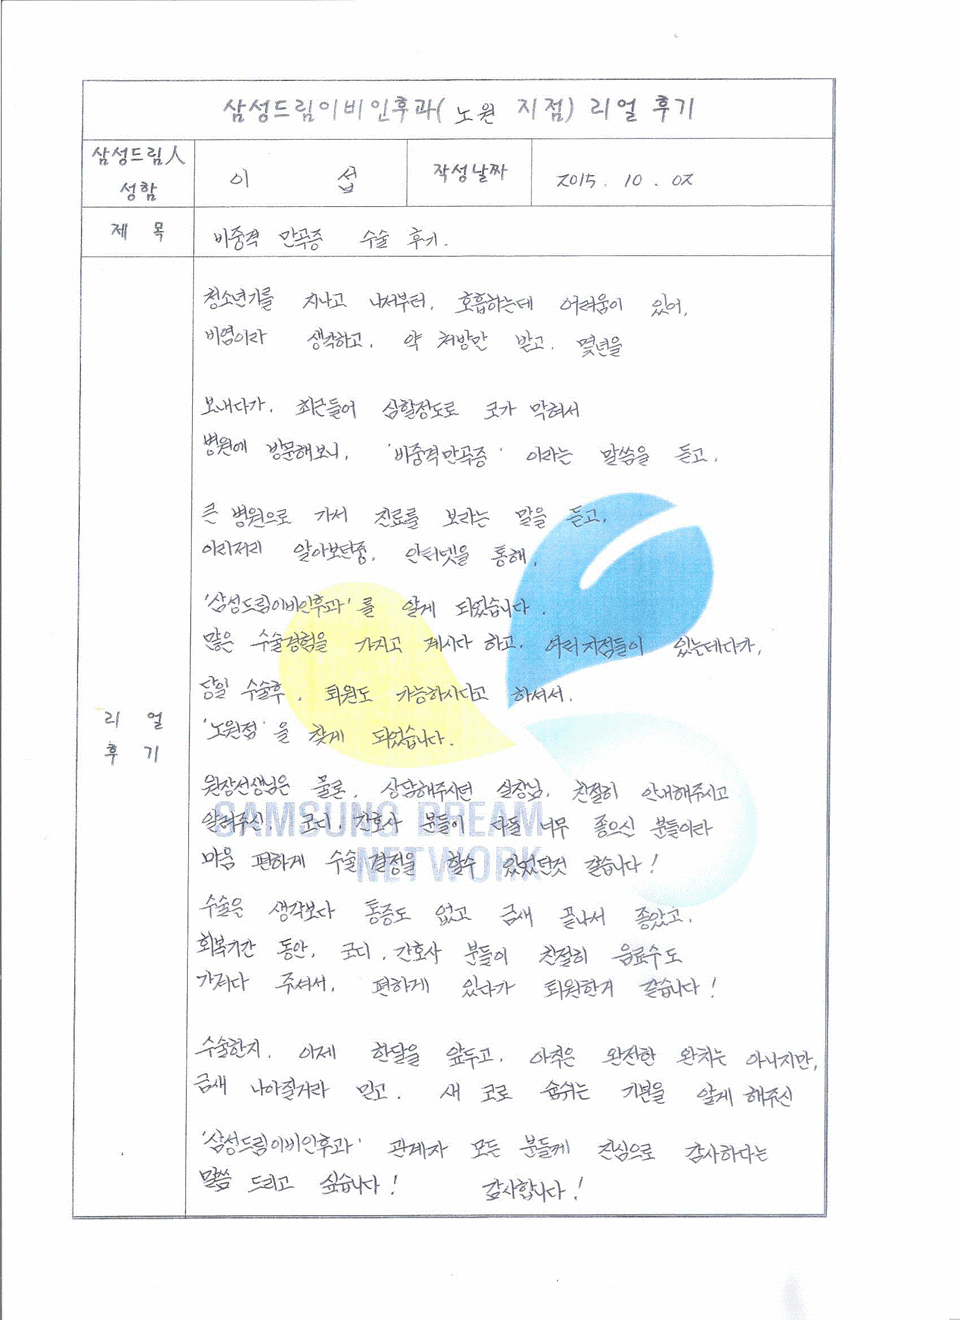 삼성드림이비인후과( 노원 지점) 리얼 후기
삼성드림人 성함
이 섭
작성날짜
2015. 10. 02
제 목
비중격 만곡증 수술 후기.
리 얼
후 기
청소년기를 지나고 나서부터, 호흡하는데 어려움이 있어,
비염이라 생각하고, 약 처방만 받고. 몇년을
보내다가, 최근들어 심할정도로 코가 막혀서
병원에 방문해보니, '비중격만곡증' 이라는 말씀을 듣고,
큰 병원으로 가서 진료를 보라는 말을 듣고,
이리저리 알아보던중, 인터넷을 통해,
'삼성드림이비인후과'를 알게 되었습니다.
많은 수술경험을 가지고 계시다 하고, 여러지점들이 있는데다가,
당일 수술후, 퇴원도 가능하시다고 하셔서,
'노원점'을 찾게 되었습니다.
원장선생님은 물론, 상담해주시던 실장님, 친절히 안내해주시고
알려주신, 코디, 간호사 분들이 다들 너무 좋으신 분들이라
마음 편하게 수술 결정을 할수 있었던것 같습니다!
수술은 생각보다 통증도 없고 금새 끝나서 좋았고,
회복기간 동안, 코디, 간호사 분들이 친절히 음료수도
가져다 주셔서, 편하게 있다가 퇴원한거 같습니다!
수술한지, 이제 한달을 앞두고, 아직은 완전한 완치는 아니지만,
금새 나아질거라 믿고, 새 코로 숨쉬는 기분을 알게 해주신
'삼성드림이비인후과' 관계자 모든 분들께 진심으로 감사하다는
말씀 드리고 싶습니다! 감사합니다!
SAMSUNG DREAM
NETWORK